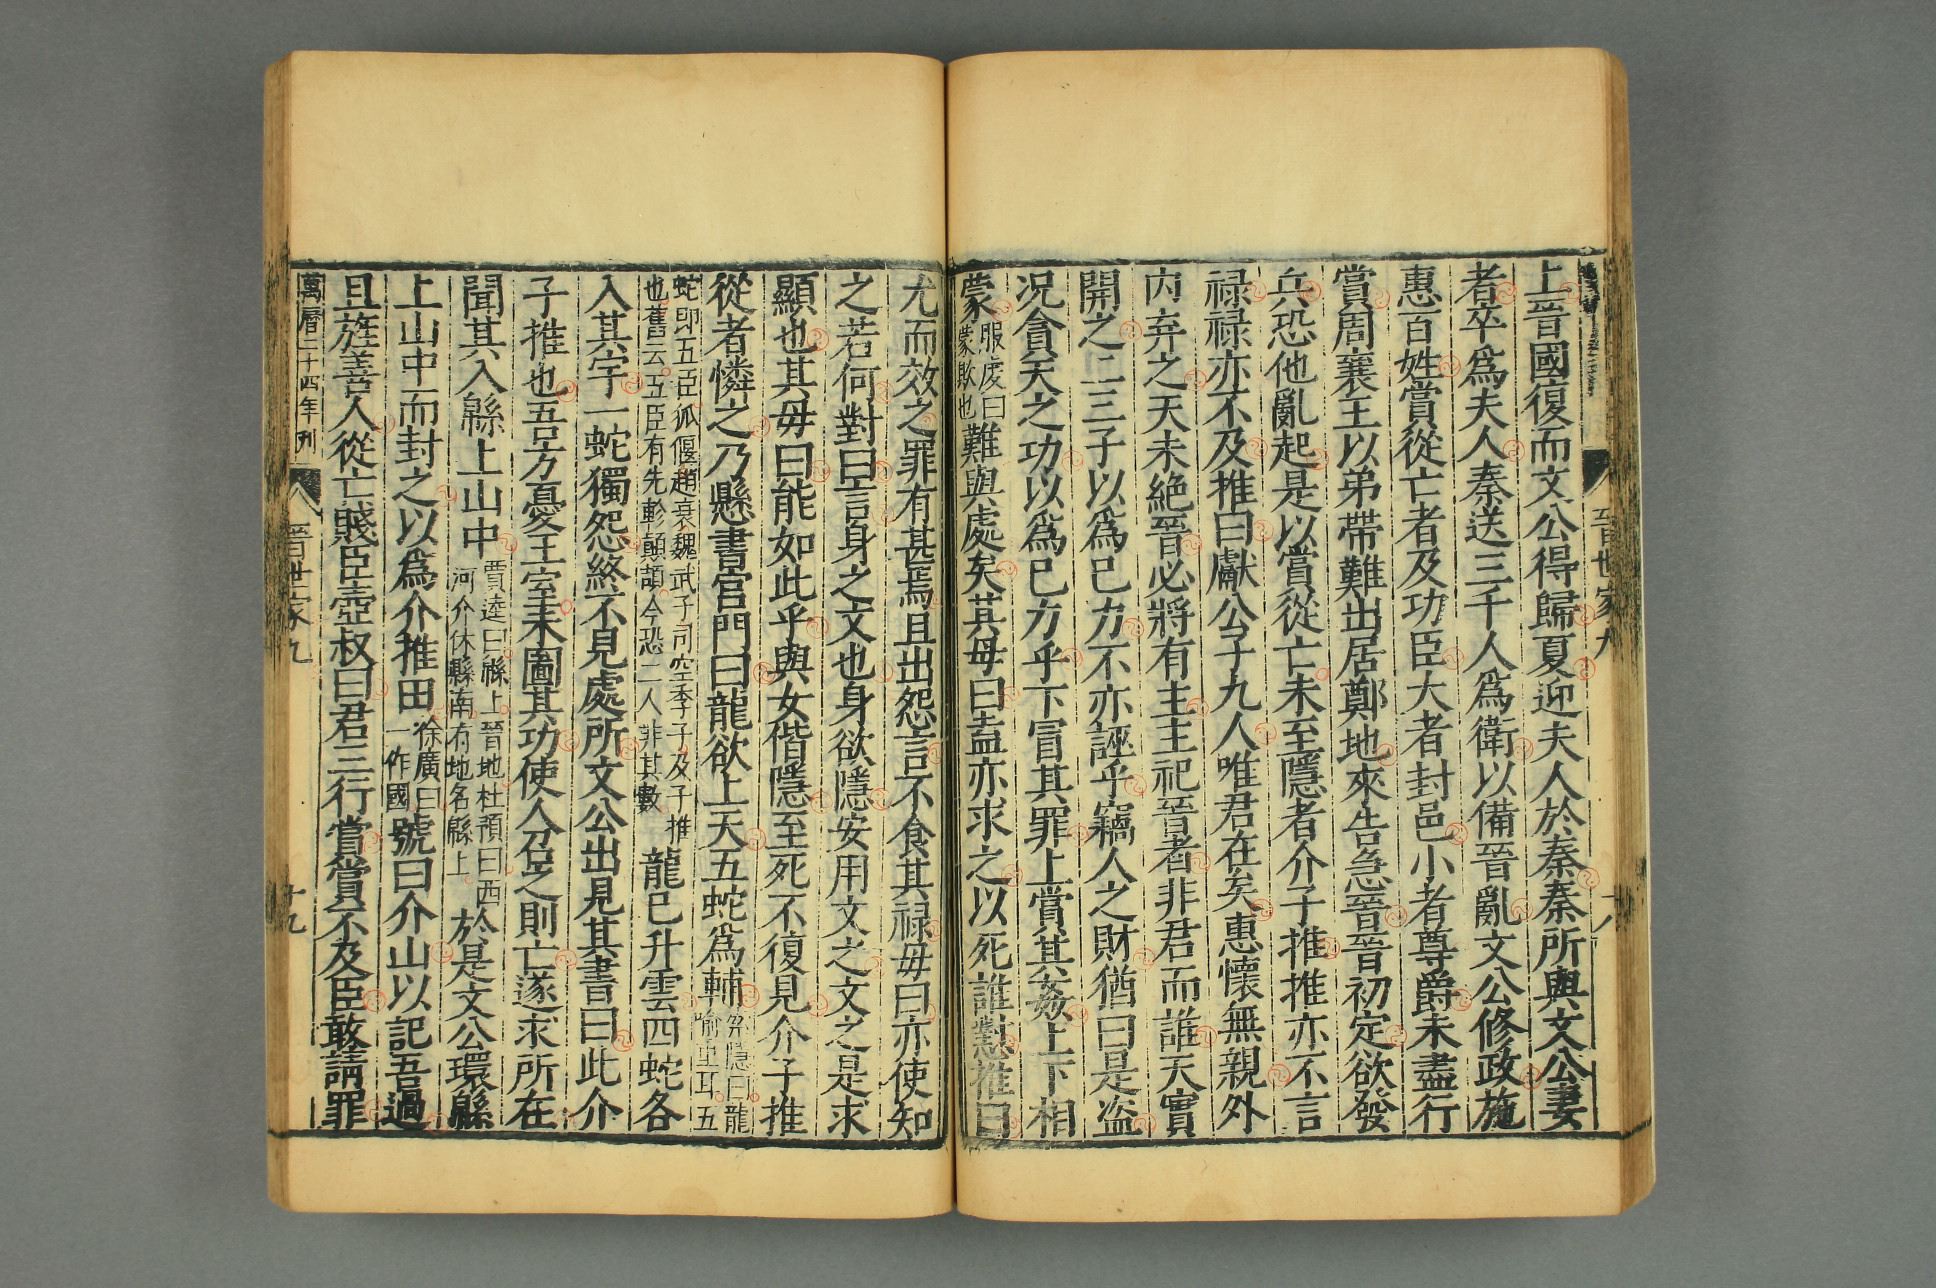 上晉國復而文公得歸夏迎夫人於秦秦所與文公妻
者卒爲夫人秦送三千人爲衛以備晉亂文公修政施
惠百姓賞從亡者及功臣大者封邑小者尊爵未盡行
賞周襄王以弟帶難出居鄭地來告急晉晉初定欲發
兵恐他亂起是以賞從亡未至隱者介子推推亦不言
祿祿亦不及推曰獻公子九人唯君在矣惠懷無親外
内弃之天未絶晉必將有主主祀晉者非君而誰天實
開之二三子以爲已力不亦誣乎竊人之財猶曰是盗
况貪天之功以爲已力乎下冒其罪上賞其姦上下相
蒙服虔曰蒙欺也難與處矣其母曰盍亦求之以死誰懟推曰
尤而效之罪有甚焉且出怨言不食其祿母曰亦使知
之若何對曰言身之文也身欲隱安用文之文之是求
顯也其母曰能如此乎與女偕隱至死不復見介子推
從者憐之乃懸書宫門曰龍欲上天五蛇爲輔索隱曰龍喻重耳五
蛇即五臣狐偃趙衰魏武子司空季子及子推也舊云五臣有先軫顛頡今恐二人非其數龍已升雲四蛇各
入其宇一蛇獨怨終不見處所文公出見其書曰此介
子推也吾方憂王室未圖其功使人召之則亡遂求所在
聞其入緜上山中賈逵曰緜上晉地杜預曰西河介休縣南有地名緜上於是文公環緜
上山中而封之以爲介推田徐廣曰一作國號曰介山以記吾過
且旌善人從亡賤臣壺叔曰君三行賞賞不及臣敢請罪
萬曆二十四年刊
晉世家九
十九
晉世家九
十八